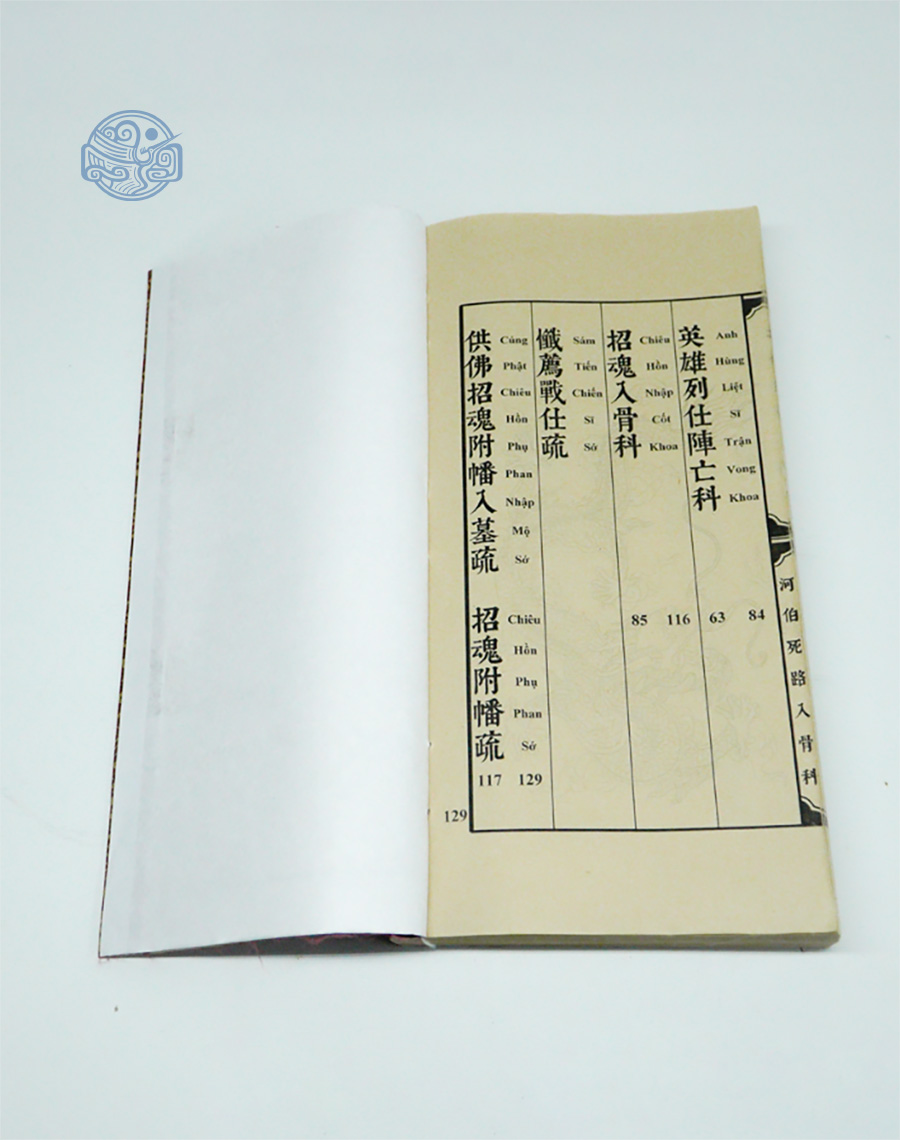 英雄列仕陣亡科
Anh Hùng Liệt Sĩ Trận Vong Khoa
63 84
招魂入骨科
Chiêu Hồn Nhập Cốt Khoa
85 116
懺薦戰仕疏
Sám Tiến Chiến Sĩ Sớ
供佛招魂附幡入墓疏
Cúng Phật Chiêu Hồn Phụ Phan Nhập Mộ Sớ
招魂附幡疏
Chiêu Hồn Phụ Phan Sớ
117 129
河伯死路入骨科
129